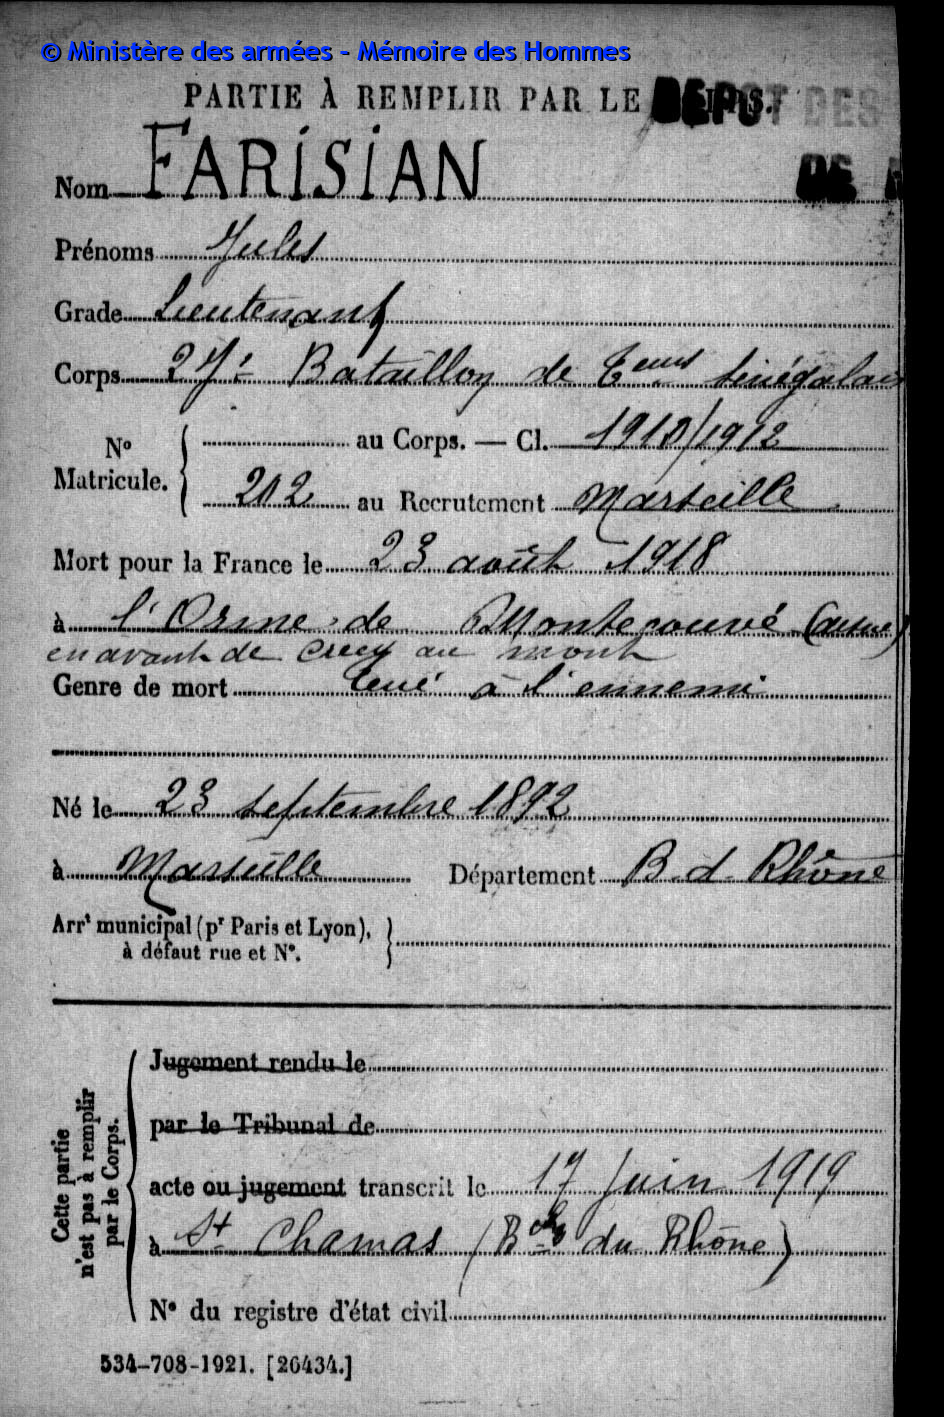 © Ministère des armées - Mémoire des Hommes
PARTIE À REMPLIR PAR LE CORPS.
DÉPOT DES
DE
Nom FARISIAN
Prénoms Jules
Grade Lieutenant
Corps 27e Bataillon de Teurs sénégalais
N° Matricule. { au Corps. — Cl. 1910/1912
202 au Recrutement Marseille
Mort pour la France le 23 août 1918
à l'Orme de Montecouvé (aisne)
en avant de Crecy au mont
Genre de mort tué à l'ennemi
Né le 23 septembre 1892
à Marseille Département B. d. Rhône
Arrt municipal (pr Paris et Lyon), à défaut rue et N°. }
Cette partie n'est pas à remplir par le Corps.
Jugement rendu le
par le Tribunal de
acte ou jugement transcrit le 17 Juin 1919
à St Chamas (Bches du Rhône)
N° du registre d'état civil
534-708-1921. [26434.]